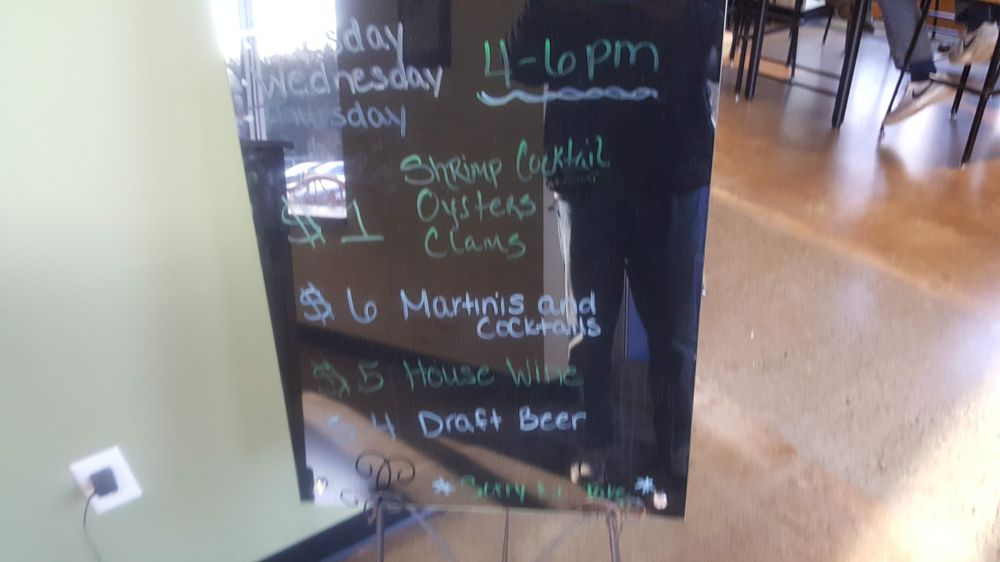 Wednesday
4-6pm
$1 Shrimp Cocktail
Oysters
Clams
$6 Martinis and
Cocktails
$5 House Wine
$4 Draft Beer
* Sorry *